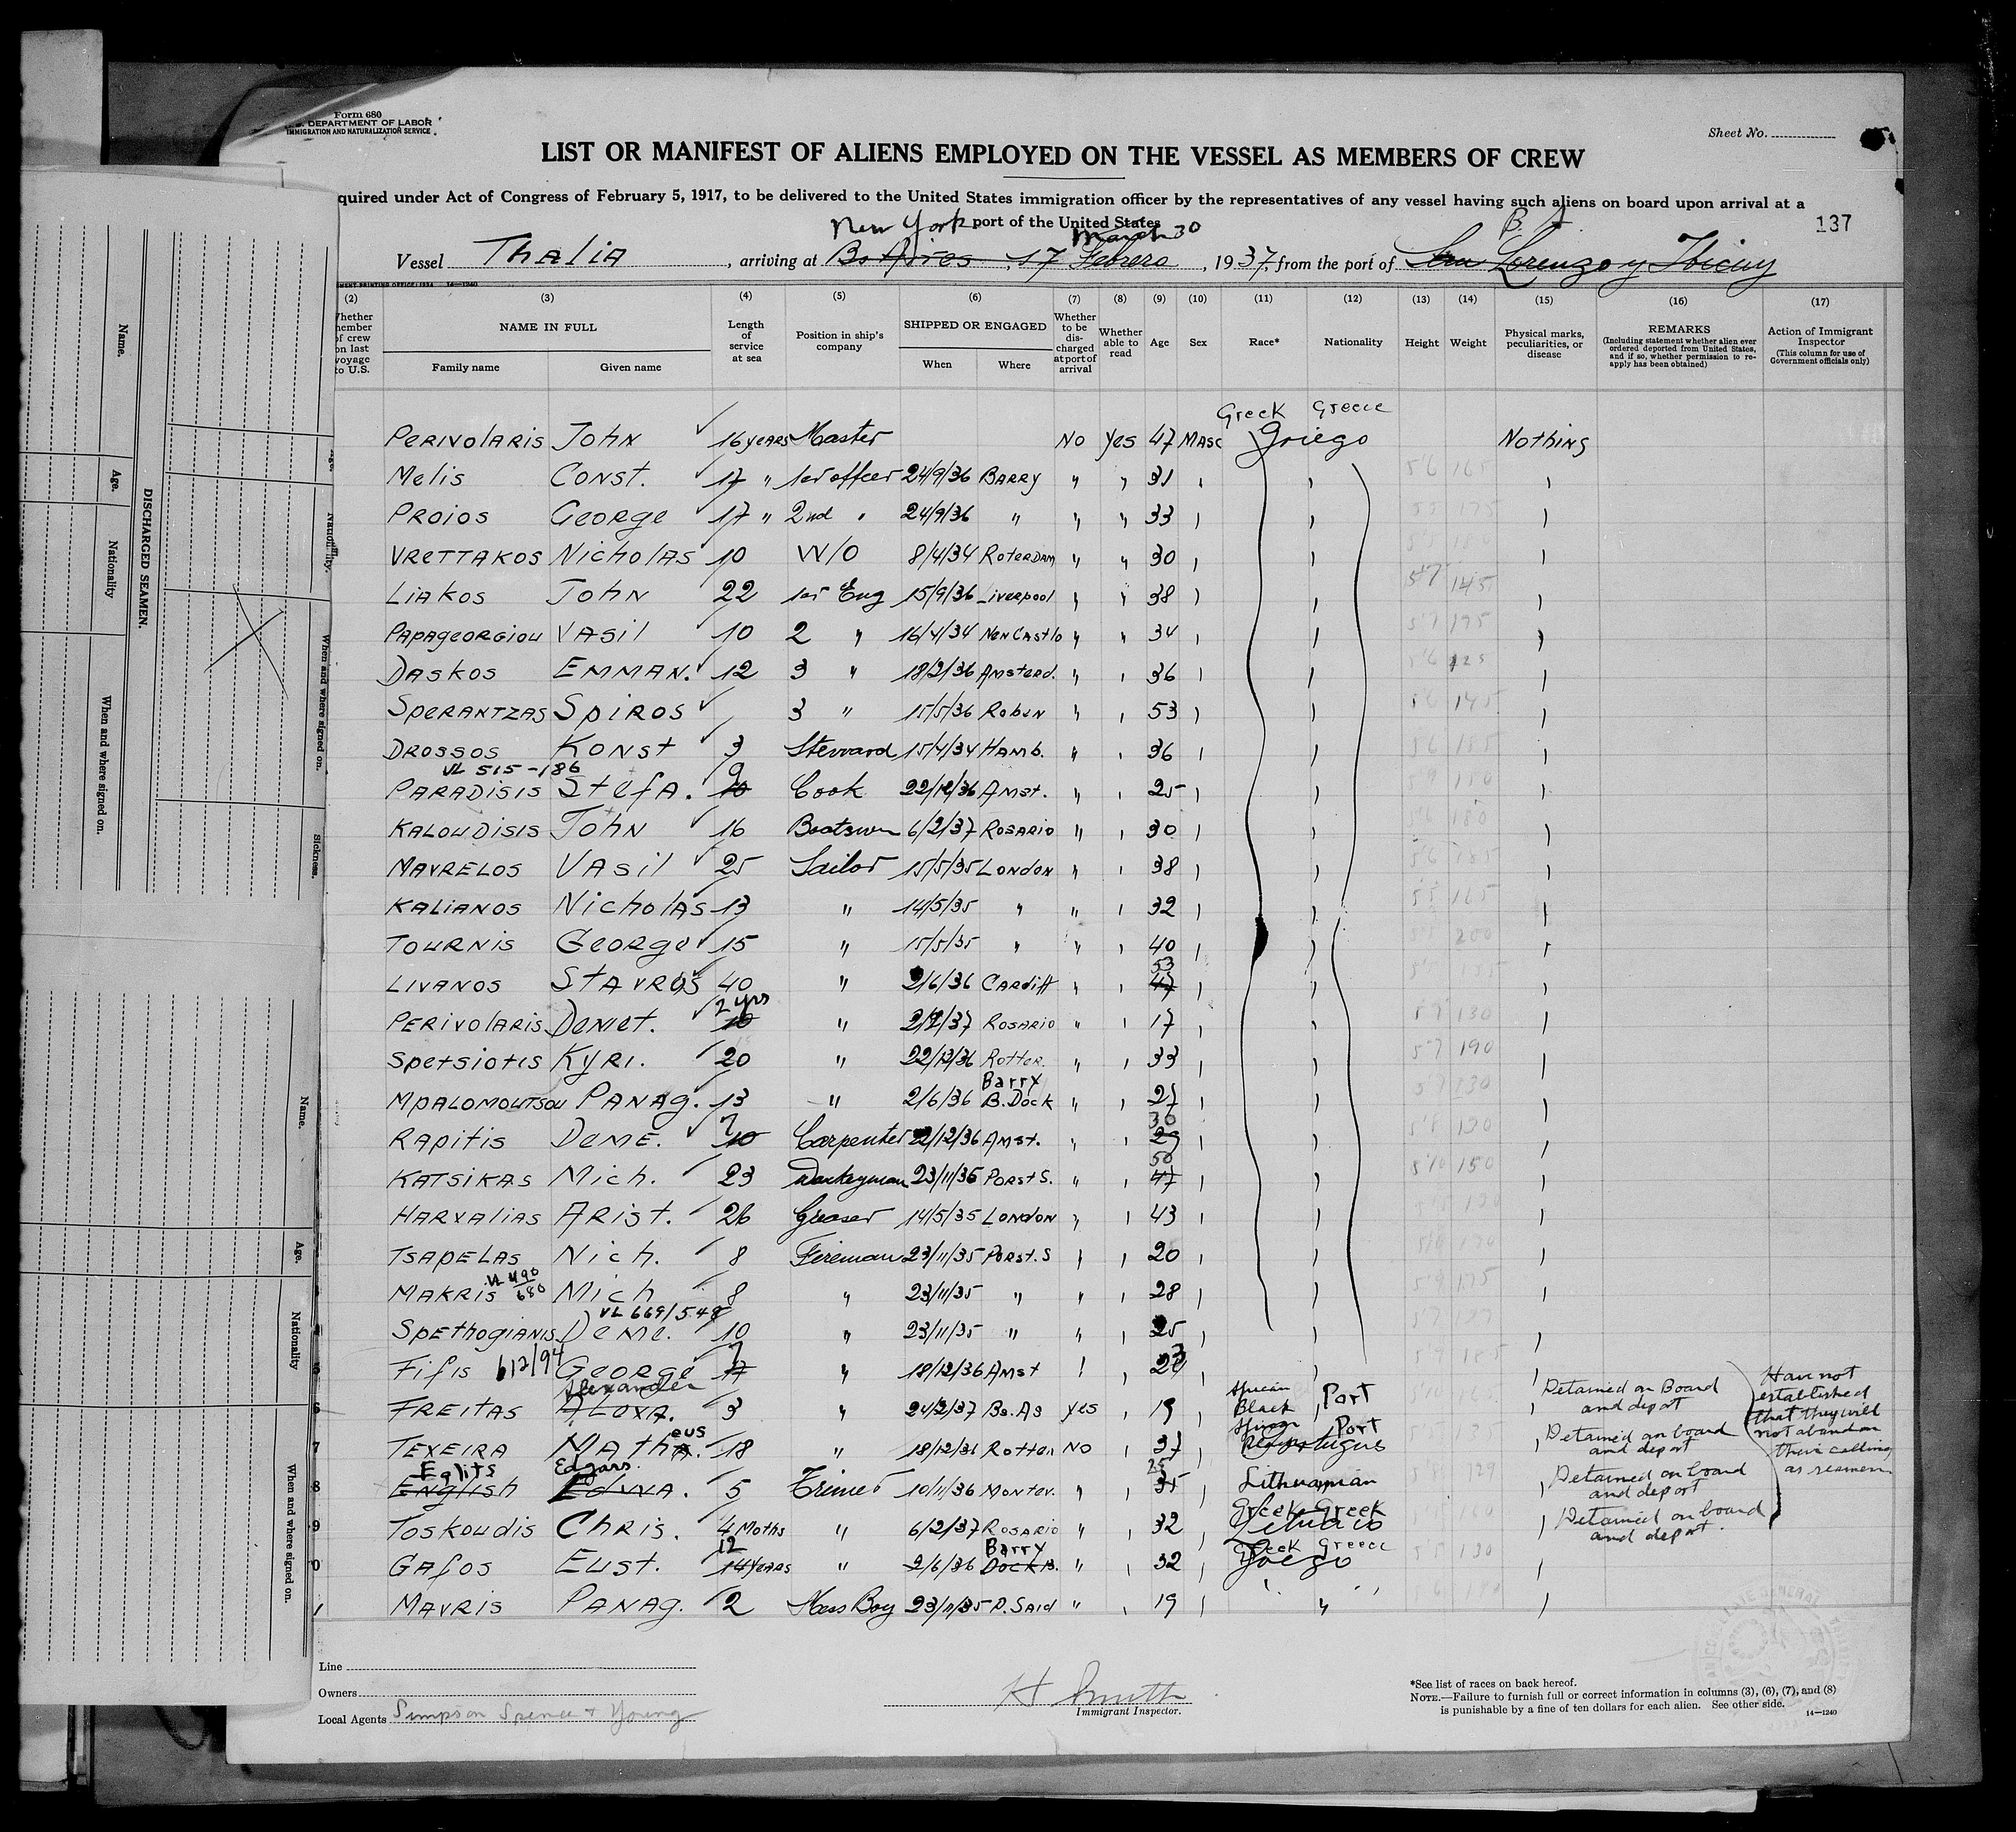 Form 680
U.S. DEPARTMENT OF LABOR
IMMIGRATION AND NATURALIZATION SERVICE
Sheet No.
LIST OR MANIFEST OF ALIENS EMPLOYED ON THE VESSEL AS MEMBERS OF CREW
quired under Act of Congress of February 5, 1917, to be delivered to the United States immigration officer by the representatives of any vessel having such aliens on board upon arrival at a
port of the United States
137
New York March 30 B. A
Vessel Thalia, arriving at B. Aires, 17 Febrero, 1937, from the port of San Lorenzo y Ibicuy
(2) (3) (4) (5) (6) (7) (8) (9) (10) (11) (12) (13) (14) (15) (16) (17)
Whether member of crew on last voyage to U.S.
NAME IN FULL
Family name Given name
Length of service at sea
Position in ship's company
SHIPPED OR ENGAGED
When Where
Whether to be discharged at port of arrival
Whether able to read
Age Sex Race* Nationality Height Weight
Physical marks, peculiarities, or disease
REMARKS
(Including statement whether alien ever ordered deported from United States, and if so, whether permission to reapply has been obtained)
Action of Immigrant Inspector
(This column for use of Government officials only)
Greek Greece
PERIVOLARIS JOHN 16 YEARS Master NO Yes 47 MASC Griego Nothing
Melis CONST. 17 " 1st officer 24/9/36 BARRY " " 31
PROIOS GEORGE 17 " 2nd " 24/9/36 " " " 33
VRETTAKOS NICHOLAS 10 W/O 8/4/34 ROTERDAM " " 30
LIAKOS JOHN 22 1st Eng 15/9/36 Liverpool " " 38 5'7 145
PAPAGEORGIOU VASIL 10 2 " 16/4/34 NEWCASTLO " " 34 5'7 195
DASKOS EMMAN. 12 3 " 18/2/36 AMSTERD. " " 36 5'6 125
SPERANTZAS SPIROS 3 " 15/5/36 Roben " 53 145
DROSSOS KONST 3 Stevvard 15/4/34 HAMB. " 36 5'6 185
VL 515-186 9
PARADISIS STEFA. 10 Cook 22/12/36 AMST. " 25
KALOUDISIS JOHN 16 Boatswn 6/2/37 ROSARIO " 30 180
MAVRELOS VASIL 25 Sailor 15/5/35 LONDON " 38 185
KALIANOS NICHOLAS 13 " 14/5/35 " " 32 165
TOURNIS GEORGE 15 " 15/5/35 " " 40 200
53
LIVANOS STAVROS 40 " 2/6/36 CARDIFF " 47
2 yrs
PERIVOLARIS DEMET. 10 " 2/2/37 ROSARIO " 17 5'7 130
SPETSIOTIS KYRI. 20 " 22/12/36 ROTTER. " 33 5'7 190
Barry
MPALOMOUTSOU PANAG. 13 " 2/6/36 B. DOCK " 27
7 30
RAPITIS DEME. 10 Carpenter 2/12/36 AMST. " 29
50
KATSIKAS Mich. 23 Donkeyman 23/11/36 PORST S. " 47 5'10 150
HARVALIAS ARIST. 26 Greaser 14/5/35 LONDON " 43
TSAPELAS NICH. 8 Fireman 23/11/35 PORST. S 20
VL 490/680
MAKRIS MICH 8 " 23/11/35 " " 28 175
VL 669/548
SPETHOGIANIS DEME. 10 " 23/11/35 " " 25
FIFIS 612/94 GEORGE 7 " 18/12/36 AMST 185
Alexander African
FREITAS ALEXA. 3 " 24/2/37 Bs. As yes 19 Black Port Detained on Board and deport
eus African Port
TEXEIRA MATHA. 18 " 18/12/36 ROTTER NO 37 Portugus Detained on board and deport
Eglits Edgars 25
English EDVVA. 5 Trimer 10/11/36 MONTEV. " 35 Lithuanian Detained on board and deport
Greek Greek
TOSKOUDIS CHRIS. 4 Moths " 6/2/37 ROSARIO " 32 Lituano Detained on board and deport.
12 Barry Greek Greece
GAFOS EUST. 14 YEARS " 2/6/36 DOCK B. " 32 Griego 130
MAVRIS PANAG. 2 Mess Boy 23/11/35 P. SAID " 19 "
Have not established that they will not abandon their calling as seamen
Line
Owners
Local Agents Simpson Spence & Young
H Smith
Immigrant Inspector.
*See list of races on back hereof.
NOTE.—Failure to furnish full or correct information in columns (3), (6), (7), and (8)
is punishable by a fine of ten dollars for each alien. See other side.
14—1240
DISCHARGED SEAMEN.
Name.
Age.
Nationality
When and where signed on.
Nationality.
When and where signed on.
Sickness.
Name.
Age.
Nationality
When and where signed on.